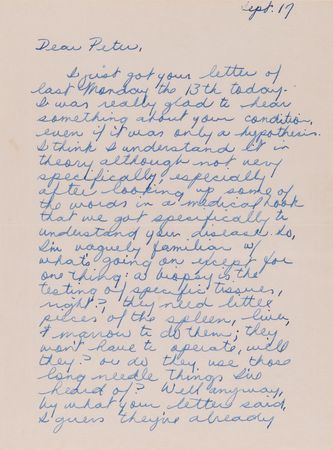 Sept. 17
Dear Peter,
I just got your letter of
last Monday the 13th today.
I was really glad to hear
something about your condition,
even if it was only a hypothesis.
I think I understand it in
theory although not very
specifically, especially
after looking up some of
the words in a medical book
that we got specifically to
understand your disease. So,
I'm vaguely familiar w/
what's going on except for
one thing: a biopsy is the
testing of specific tissues,
right?, they need little
pieces of the spleen, liver,
& marrow to do them; they
won't have to operate, will
they? or do they use those
long needle things I've
heard of? Well anyway,
by what your letter said,
I guess they've already